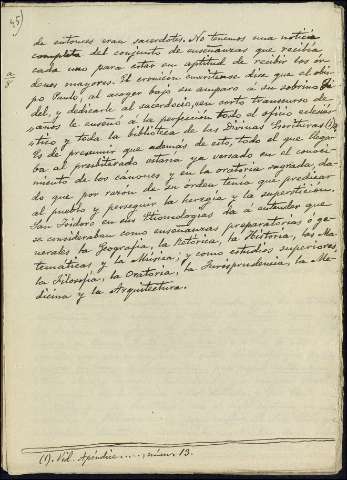 45)
de entonces eran sacerdotes. No tenemos una noticia
completa del conjunto de enseñanzas que recibía
cada uno para estar en aptitud de recibir los ór-
denes mayores. El cronicón emeritense dice que el obis-
po Paulo, al acoger bajo su amparo á su sobrino Fi-
del, y dedicarle al sacerdocio, en corto transcurso de
años le enseñó á la perfección todo el oficio eclesiás-
tico y toda la biblioteca de las Divinas Escrituras (1).
Es de presumir que además de esto, todo el que llega-
ba al presbiterado estaría ya versado en el conoci-
miento de los cánones y en la oratoria sagrada, da-
do que por razón de su orden tenía que predicar
al pueblo y perseguir la heregía y la superstición.
San Isidoro en sus Etimologías da á entender que
se consideraban como enseñanzas preparatorias ó ge-
nerales la Geografía, la Retórica, la Historia, las Ma-
temáticas y la Música; y como estudios superiores
la Filosofía, la Oratoria, la Jurisprudencia, la Me-
dicina y la Arquitectura.
(1). Vid. Apéndice ...., núm. 13.